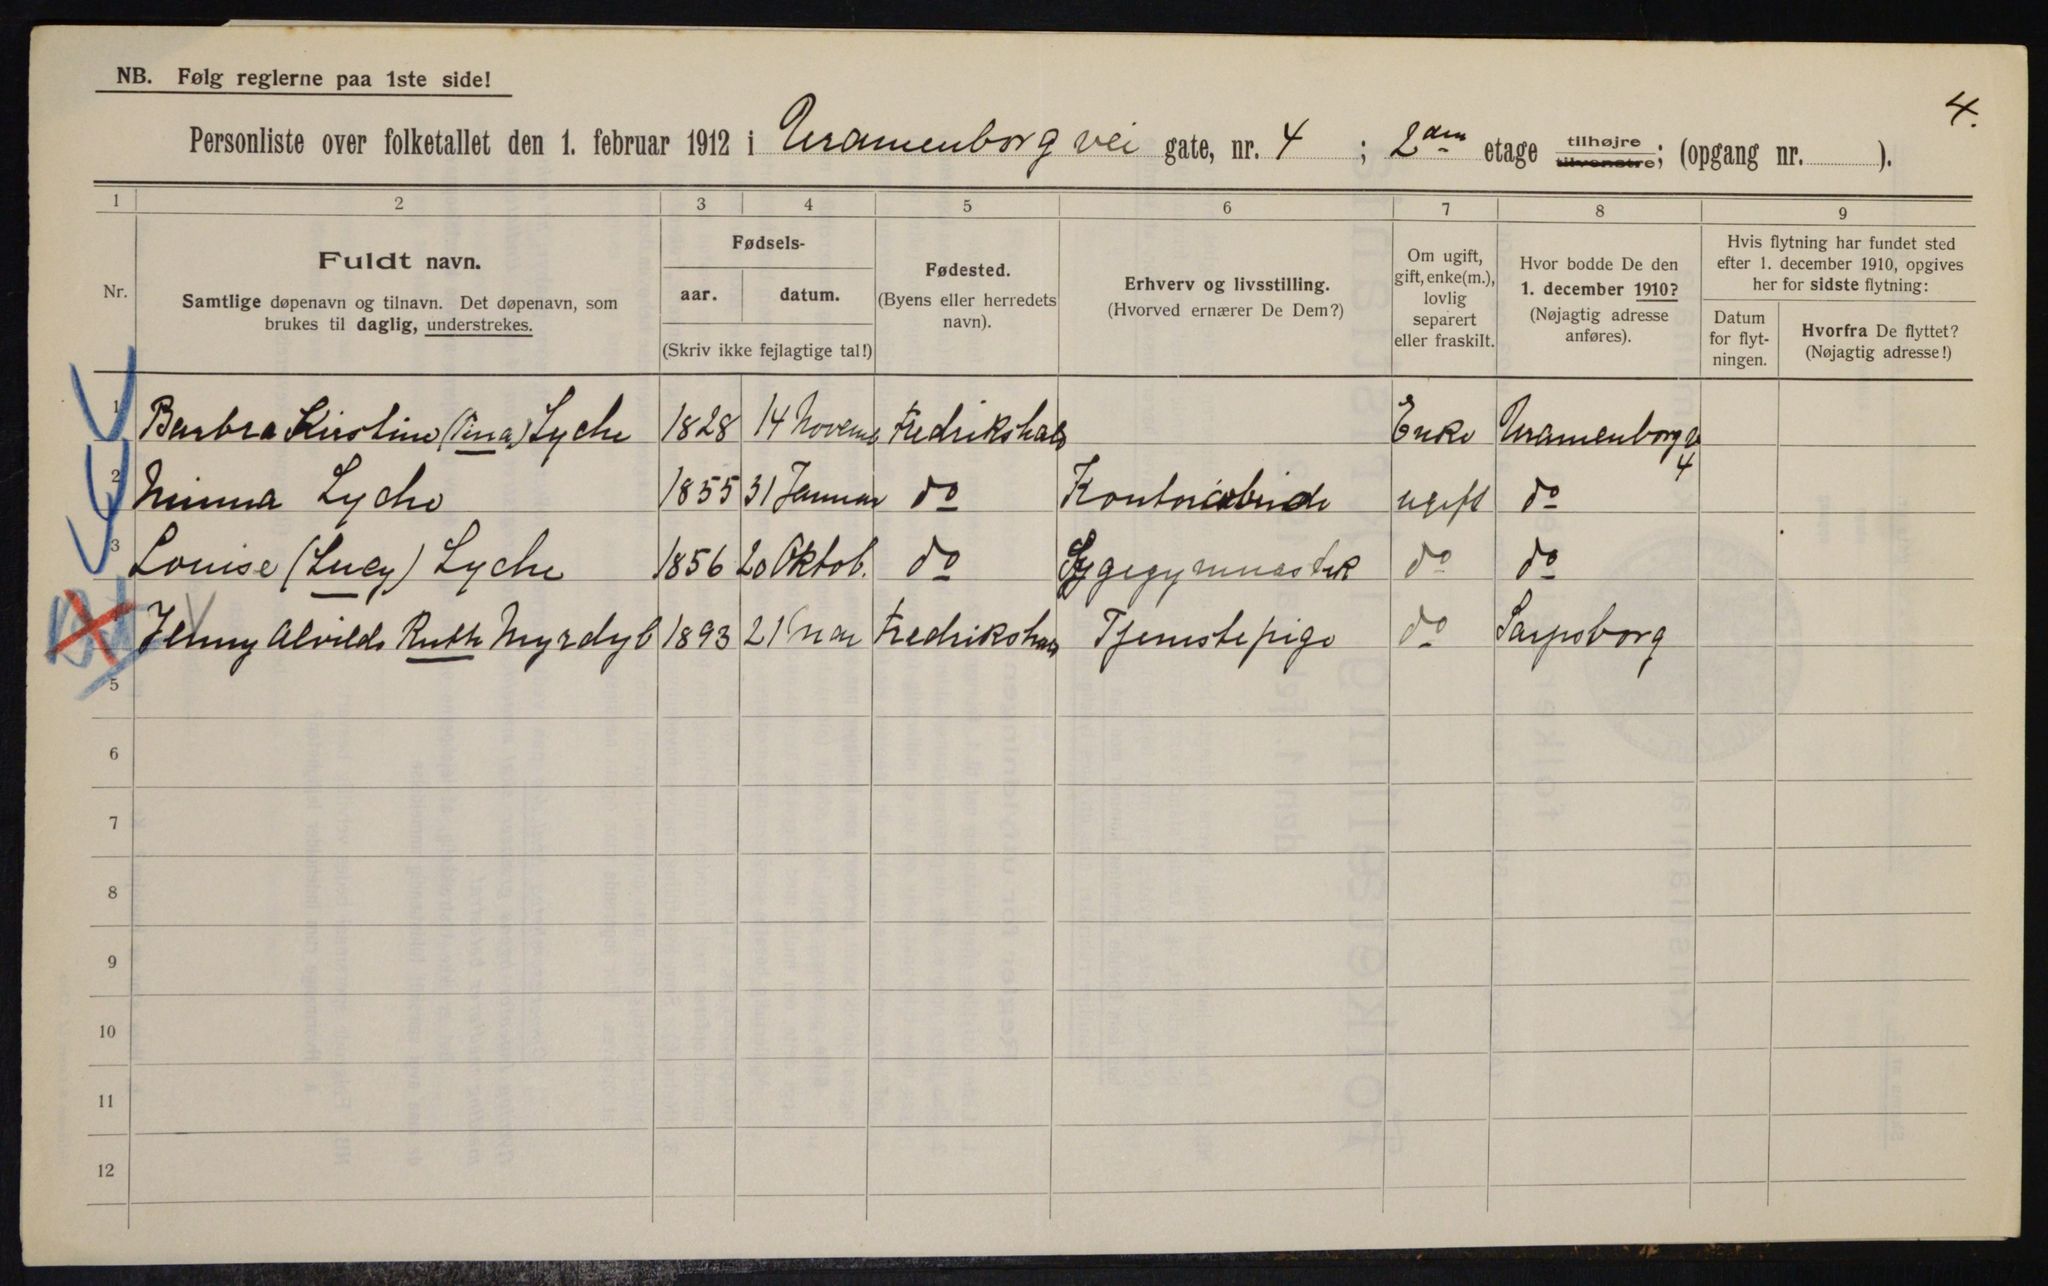 NB. Følg reglerne paa 1ste side!
4.
Personliste over folketallet den 1. februar 1912 i Uranienborg vei gate, nr. 4 ; 2den etage tilhøjre tilvenstre; (opgang nr. ).
1 2 3 4 5 6 7 8 9
Nr.
Fuldt navn.
Samtlige døpenavn og tilnavn. Det døpenavn, som
brukes til daglig, understrekes.
Fødsels-
aar. datum.
(Skriv ikke fejlagtige tal!)
Fødested.
(Byens eller herredets
navn).
Erhverv og livsstilling.
(Hvorved ernærer De Dem?)
Om ugift,
gift, enke(m.),
lovlig
separert
eller fraskilt.
Hvor bodde De den
1. december 1910?
(Nøjagtig adresse
anføres).
Hvis flytning har fundet sted
efter 1. december 1910, opgives
her for sidste flytning:
Datum
for flyt-
ningen.
Hvorfra De flyttet?
(Nøjagtig adresse!)
1 Barbra Kirstine (Sina) Lyche 1828 14 Novemb Fredrikshald Enke Uranienborg v 4
2 Minna Lyche 1855 31 Januar do Kontorarbeide ugift do
3 Louise (Lucy) Lyche 1856 20 Oktob. do Sygegymnastik do do
4 Jenny Alvilde Ruth Myrdyb 1893 21 Mar Fredrikshald Tjenstepige do Sarpsborg
5
6
7
8
9
10
11
12